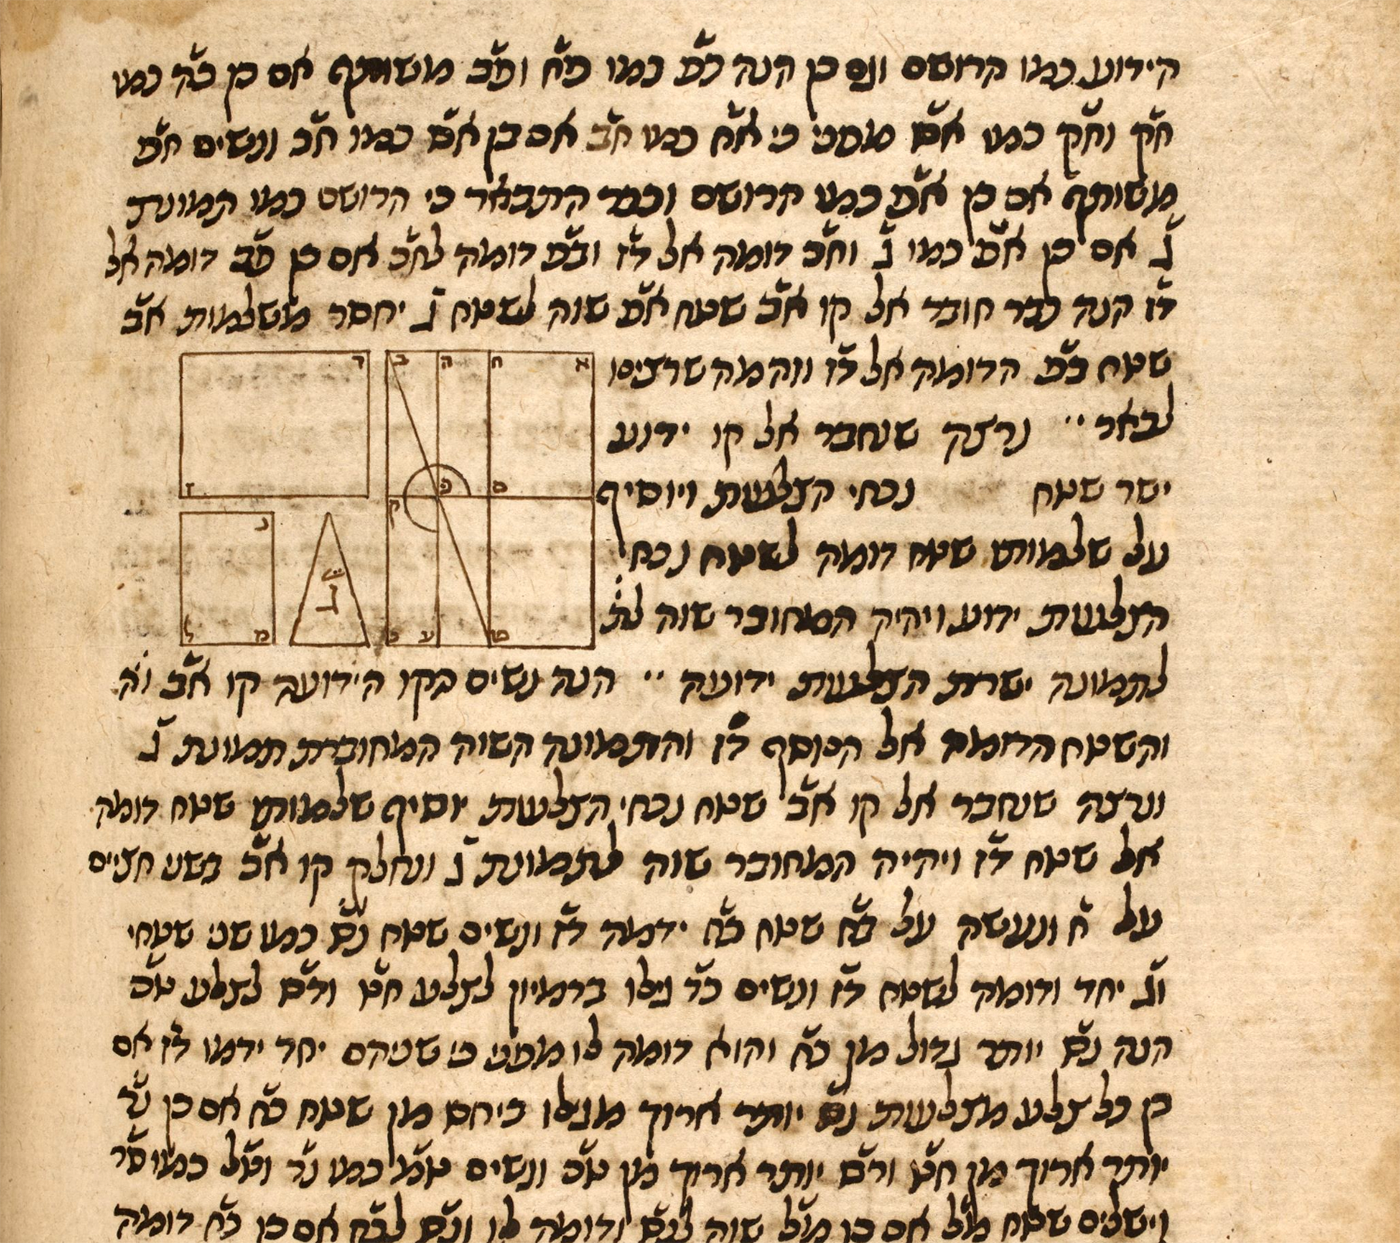 הידוע כמו הרושם ונס כן הנה כ̄ת כמו פ̄א ופ̄ב משותף אם כן כ̄ה כמו
ח̄ק וח̄ק כמו א̄ם מפני כי א̄ח כמו ח̄ב אם כן א̄ם כמו ח̄כ ונשים ח̄פ
משותף אם כן א̄פ כמו הרושם וכבר התבאר כי הרושם כמו תמונת
ג̄ אם כן א̄פ כמו ג̄ וח̄כ דומה אל ד̄ז וב̄פ דומה לח̄כ אם כן פ̄ב דומה אל
ד̄ז הנה כבר חובר אל קו א̄ב שטח א̄פ שוה לשטח ג̄ יחסר משלמות א̄ב
שטח פ̄ב הדומה אל ד̄ז וזה מה שרצינו
לבאר נרצה שנחבר אל קו ידוע
ישר שטח נכחי הצלעות ויוסיף
על שלמותו שטח דומה לשטח נכחי
הצלעות ידוע ויהיה המחובר שוה
לתמונה ישרת הצלעות ידועה הנה נשים הקו הידוע קו א̄ב
והשטח הדומה אל הנוסף ד̄ז והתמונה השוה המחוברת תמונת ג̄
ונרצה שנחבר אל קו א̄ב שטח נכחי הצלעות יוסיף שלמותו שטח דומה
אל שטח ד̄ז ויהיה המחובר שוה לתמונת ג̄ ונחלק קו א̄ב בשני חציים
על ה̄ ונעשה על ב̄ה שטח כ̄ה ידמה ד̄ז ונשים שטח נ̄ם כמו שני שטחי
וג̄ יחד ודומה לשטח ד̄ז ונשים כ̄ר גילו ברמיון לצלע ח̄ט ור̄ם לצלע ט̄כ
הנה נ̄ם יותר גדול מן כ̄ה והוא דומה לו מפני כי שניהם יחד ידמו ד̄ז אם
כן כל צלע מצלעות נ̄ם יותר ארוך מגילו ביחס מן שטח כ̄ה אם כן נ̄ר
יותר ארוך מן ח̄ט ור̄ם יותר ארוך מן ט̄כ ונשים ט̄מ כמו נ̄ר וט̄ל כמו ס̄ר
וישלים שטח מ̄ל אם כן מ̄ל שוה לנ̄ם ודומה לו ונ̄ם לכ̄ה אם כן כ̄ה דומה